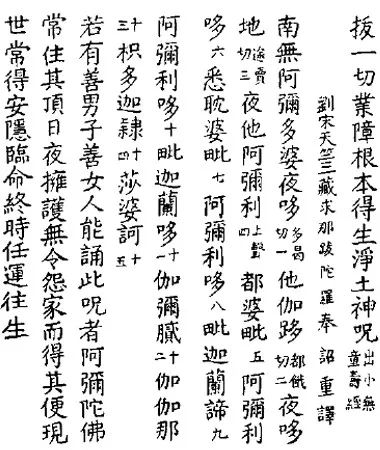 拔一切業障根本得生淨土神呪出小無量壽經
劉宋天竺三藏求那跋陀羅奉 詔重譯
南無阿彌多婆夜哆多曷切一他伽跢都餓切二夜哆
地途賣切三夜他阿彌利上聲四都婆毗五阿彌利
哆六悉耽婆毗七阿彌利哆八毗迦蘭諦九
阿彌利哆十毗迦蘭哆十一伽彌膩十二伽伽那
十三枳多迦隸十四莎婆訶十五
若有善男子善女人能誦此呪者阿彌陀佛
常住其頂日夜擁護無令怨家而得其便現
世常得安隱臨命終時任運往生